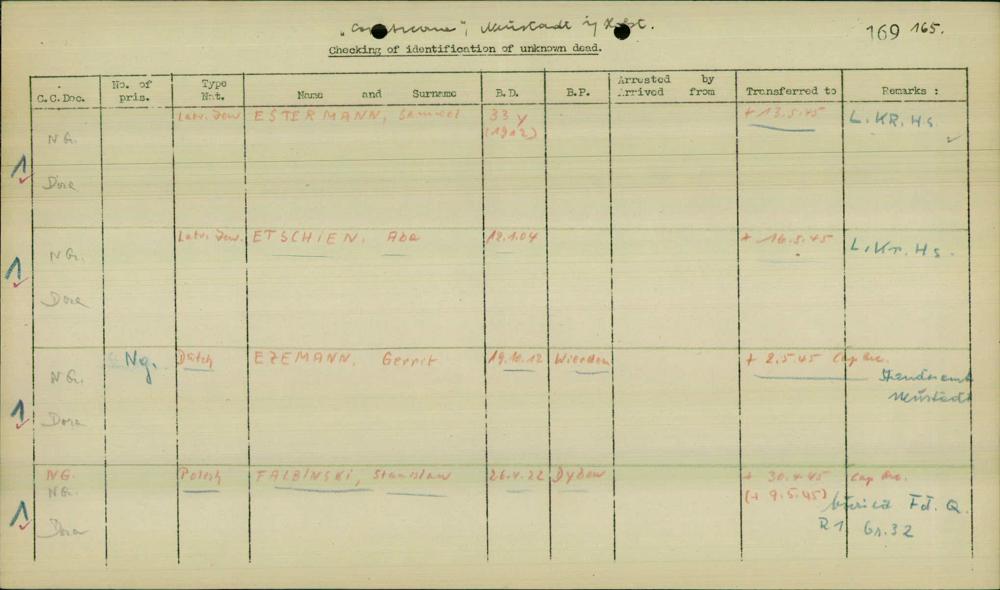 Neustadt i/ Holst.
169 165.
Checking of identification of unknown dead.
C.C.Doc. No. of pris. Type Nat. Name and Surname B.D. B.P. Arrested by Arrived from Transferred to Remarks :
Latv. Jew ESTERMANN, Samuel 33 y + 13.5.45 L. KR. Hs.
NG. (1912)
1
Dora
Latv. Jew. ETSCHIEN, Aba 12.1.04 + 16.5.45 L. Kr. Hs.
NG.
1
Dora
Ng. Dutch EZEMANN, Gerrit 19.10.12 Wierden + 2.5.45 Cap Arc.
NG. Standesamt
Neustadt
1
Dora
NG. Polish FALBINSKI, Stanislaw 26.4.22 Dybow + 30.4.45 Cap Arc.
NG. (+ 9.5.45)
Fd. Q.
1
Dora R1 Gr. 32